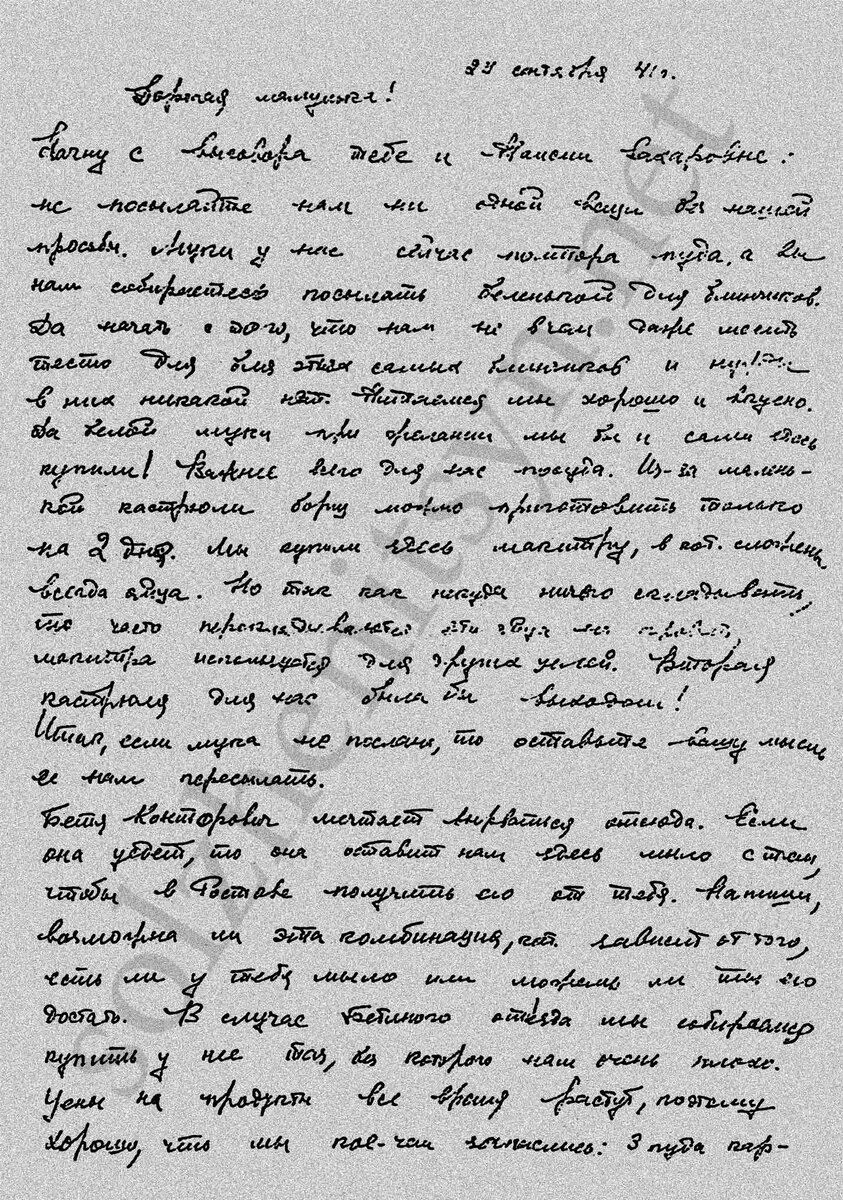 24 сентября 41 г.
Дорогая мамушка!
Начну с выговора тебе и Таисии Захаровне:
не посылайте нам ни одной вещи без нашей
просьбы. Муки у нас сейчас полтора пуда, а Вы
нам собираетесь посылать беленькой для блинчиков.
Да начать с того, что нам не в чем даже месить
тесто для этих самых блинчиков и нужды
в них никакой нет. Питаемся мы хорошо и вкусно.
Да белой муки при желании мы бы и сами здесь
купили! Важнее всего для нас посуда. Из-за малень-
кой кастрюли борщ можно приготовить только
на 2 дня. Мы купили здесь макитру, в кот. сложены
всегда яйца. Но так как некуда ничего складывать,
то часто перекладываются эти
макитра используется для других целей. Вторая
кастрюля для нас была бы выходом!
Итак, если мука не послана, то оставьте вашу мысль
ее нам пересылать.
Бетя Конторович мечтает вырваться отсюда. Если
она уедет, то она оставит нам здесь мыло с тем,
чтобы в Ростове получить его от тебя. Напиши,
возможна ли эта комбинация, кот. зависит от того,
есть ли у тебя мыло или можешь ли ты его
достать. В случае Бетиного отъезда мы собираемся
купить у нее таз, без которого нам очень плохо.
Цены на продукты все время растут, поэтому
хорошо, что мы кое-чем запаслись: 3 пуда кар-
solzhenitsyn.net